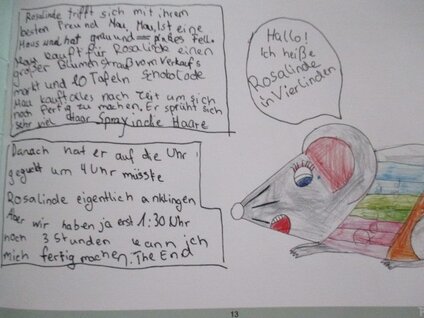 Rosalinde trifft sich mit ihrem
besten Freund Max, Max ist eine
Maus und hat grau und pinkes Fell.
Max kauft für Rosalinde einen
großer Blumnstraß vom Verkaufs
markt und 10 Tafeln Schokolade
Max kauft alles nach Zeit um sich
noch fertig zu machen. Er sprüht sich
sehr viel Haar Spray in die Haare
Danach hat er auf die Uhr
geguckt um 4 Uhr müsste
Rosalinde eigentlich anklingen
Aber wir haben ja erst 1:30 Uhr
noch 3 Stunden kann ich
mich fertig machen. The End
Hallo!
Ich heiße
Rosalinde
in Vierlinden
13